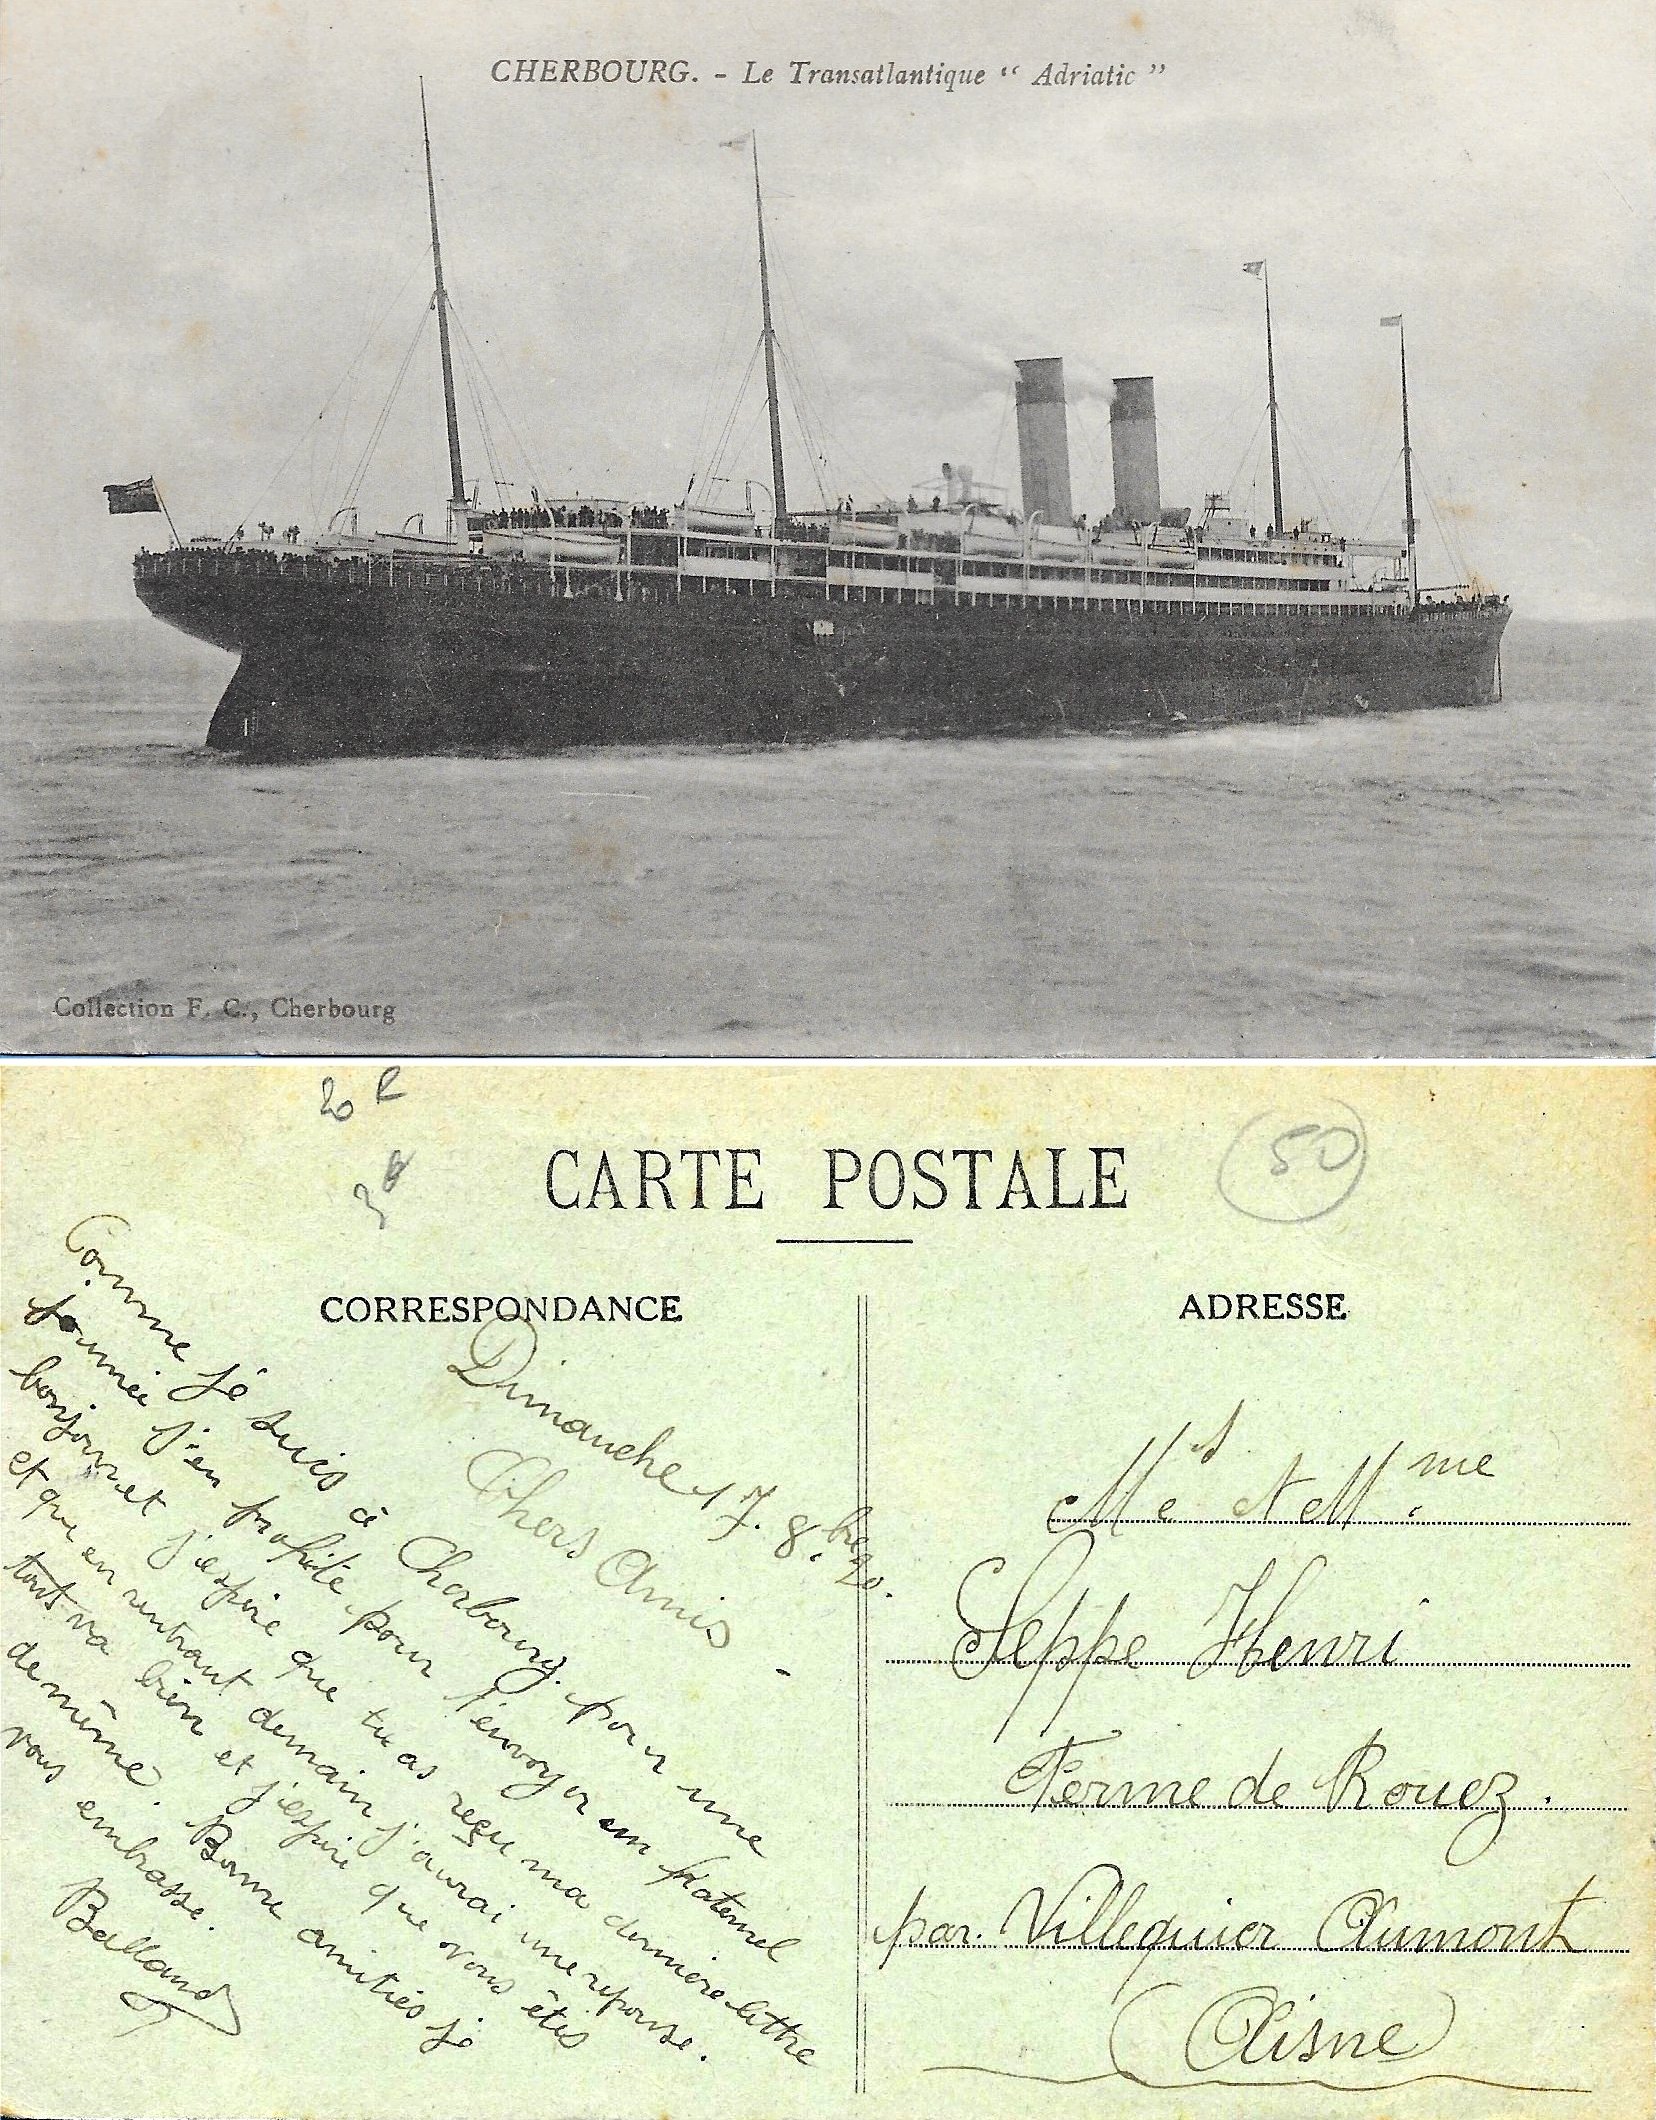 CHERBOURG. - Le Transatlantique “ Adriatic ”
Collection F. C., Cherbourg
50
CARTE POSTALE
CORRESPONDANCE
Dimanche 17. 8.bre 20.
Chers Amis -
Comme je suis à Cherbourg. pour une
journée j'en profite pour t'envoyer un fraternel
bonjour et j'espère que tu as reçu ma dernière lettre
et que en rentrant demain j'aurai une reponse.
tout va bien et j'espère que vous êtes
de même. Bonne amitiés je
vous embrasse.
Balland
ADRESSE
Mr et Mme
Seppe Henri
Ferme de Rouez.
par. Villequier Aumont
(Aisne)